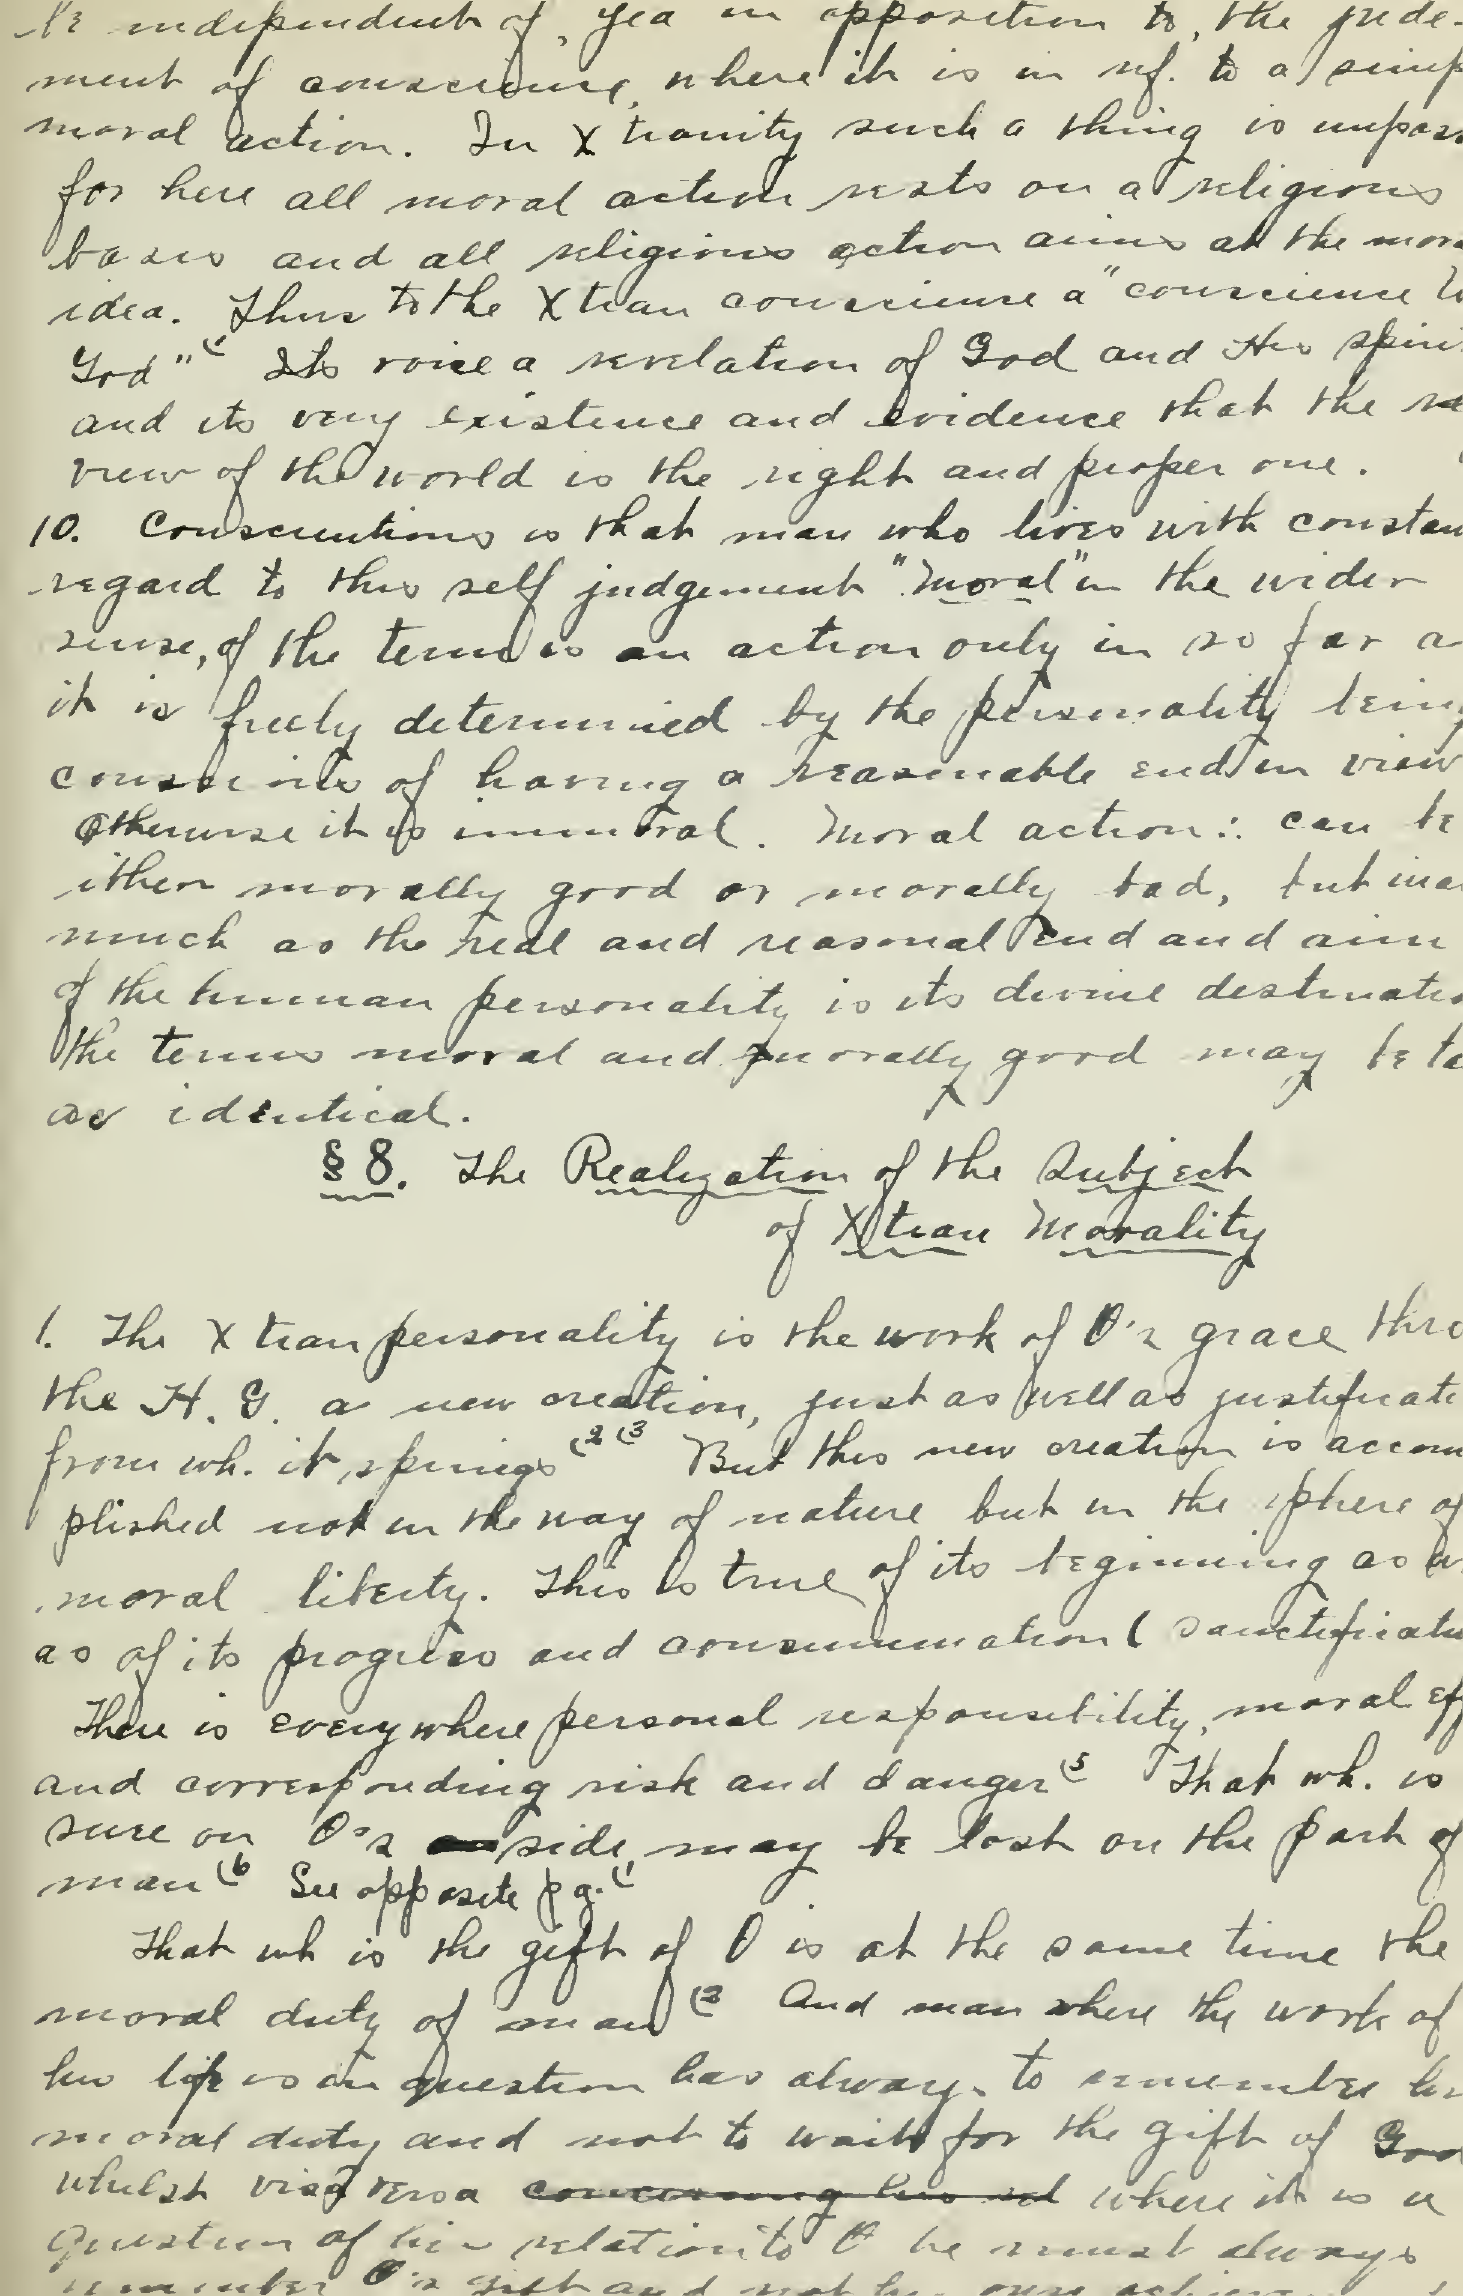 be independent of, yea in opposition to, the jude-
ment of conscience, where it is in rf. to a simp
moral action. In Xtianity such a thing is imposs
for here all moral action rests on a religious
basis and all religious action aims at the mor
idea. Thus to the Xtian conscience a "conscience to
God" (1 Its voice a revelation of God and His spiri
and its very existence and evidence that the re
view of the world is the right and proper one.
10. Conscientious is that man who lives with constan
regard to this self judgement "Moral" in the wider
sense, of the term is an action only in so far a
it is freely determined by the personality being
conscious of having a reasonable end in view
Otherwise it is immoral. Moral action ∴ can be
ither morally good or morally bad, but ina
much as the real and reasonal end and aim
of the human personality is its divine destinatio
the terms moral and morally good may be ta
as identical.
§ 8. The Realization of the Subject
of Xtian Morality
1. The Xtian personality is the work of θ's grace thro
the H. G. a new creation, just as well as justificati
from wh. it springs (2 (3 But this new creation is accom
plished not in the way of nature but in the sphere of
moral liberty. This is true of its beginning as w
as of its progress and consummation (Sanctificatio
There is everywhere personal responsibility, moral eff
and corresponding risk and danger (5 That wh. is
sure on θ's side, may be lost on the part of
man (6 See opposite pg. (1
That wh is the gift of θ is at the same time the
moral duty of man (2 And man where the work of
his life is in question has always to remember his
moral duty and not to wait for the gift of God
whilst visa versa concerning his rel where it is a
question of his relation to θ he must always
remember θ's gift and not his own achieve